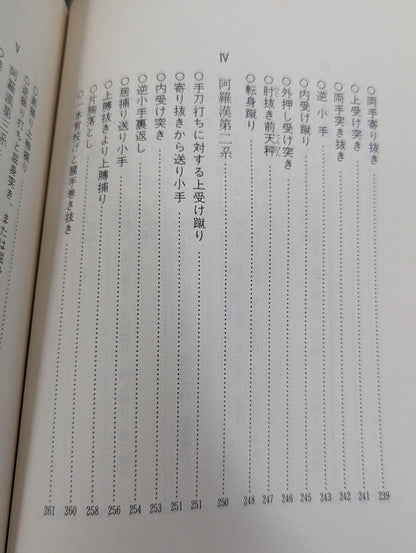 ○両手寄り抜き 239
○上受け突き 241
○両手突き抜き 242
○逆小手 243
○内受け突き 245
○外押し受け突き 246
○肘抜き前天秤 247
○転身蹴り 248
Ⅳ 阿羅漢第二系 250
○手刀打ちに対する上受け蹴り 251
○寄り抜きから送り小手 251
○内受け突き 253
○逆小手裏返し 254
○居捕り送り小手 256
○上膊抜きより上膊捕り 258
○片胸落とし 260
○一本背投げと閂手巻き抜き 261
Ⅴ 阿羅漢第三系